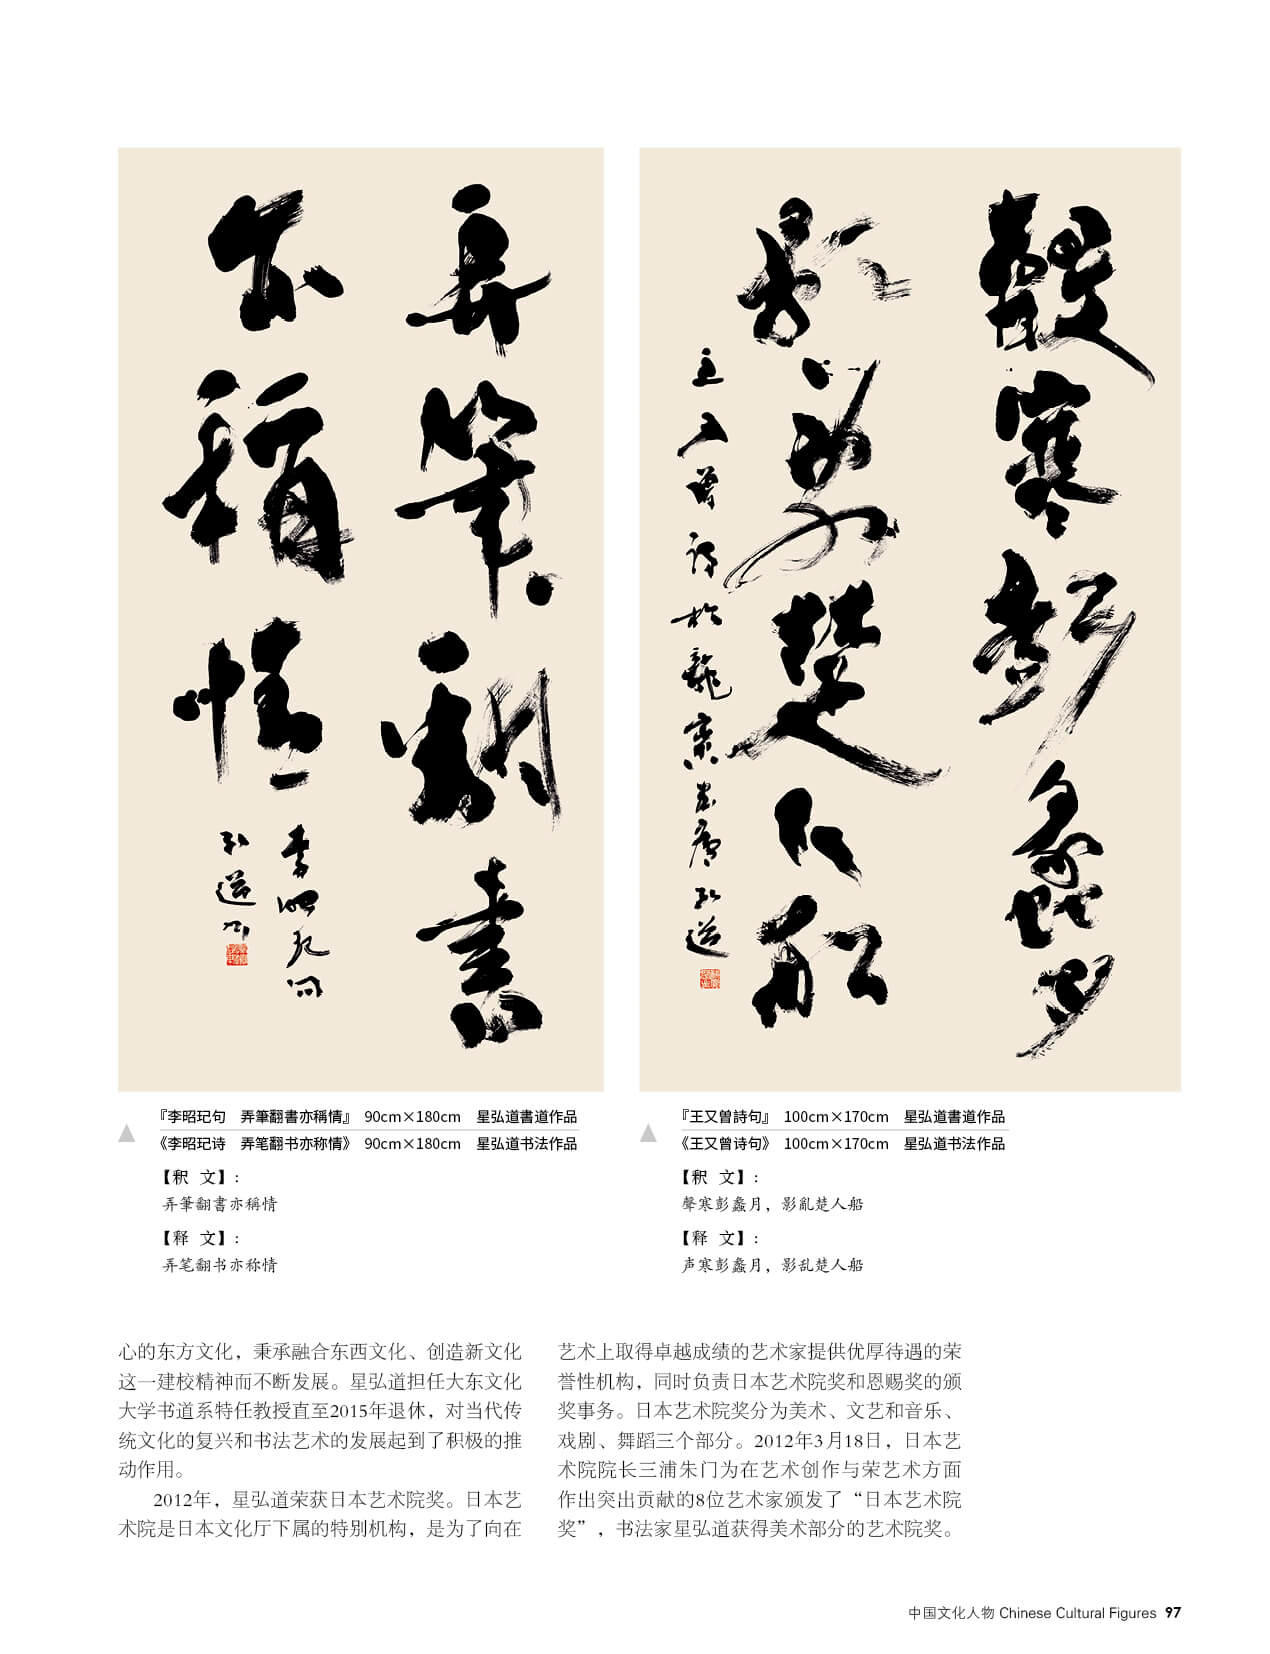 弄筆翻書
亦稱情
李昭玘句
弘道
聲寒彭蠡月
影亂楚人船
王又曾詩句
弘道
『李昭玘句　弄筆翻書亦稱情』　90cm×180cm　星弘道書道作品
《李昭玘诗　弄笔翻书亦称情》　90cm×180cm　星弘道书法作品
【釈　文】:
弄筆翻書亦稱情
【释　文】:
弄笔翻书亦称情
『王又曾詩句』　100cm×170cm　星弘道書道作品
《王又曾诗句》　100cm×170cm　星弘道书法作品
【釈　文】:
聲寒彭蠡月，影亂楚人船
【释　文】:
声寒彭蠡月，影乱楚人船
心的东方文化，秉承融合东西文化、创造新文化
这一建校精神而不断发展。星弘道担任大东文化
大学书道系特任教授直至2015年退休，对当代传
统文化的复兴和书法艺术的发展起到了积极的推
动作用。
2012年，星弘道荣获日本艺术院奖。日本艺
术院是日本文化厅下属的特别机构，是为了向在
艺术上取得卓越成绩的艺术家提供优厚待遇的荣
誉性机构，同时负责日本艺术院奖和恩赐奖的颁
奖事务。日本艺术院奖分为美术、文艺和音乐、
戏剧、舞蹈三个部分。2012年3月18日，日本艺
术院院长三浦朱门为在艺术创作与荣艺术方面
作出突出贡献的8位艺术家颁发了“日本艺术院
奖”，书法家星弘道获得美术部分的艺术院奖。
中国文化人物 Chinese Cultural Figures 97